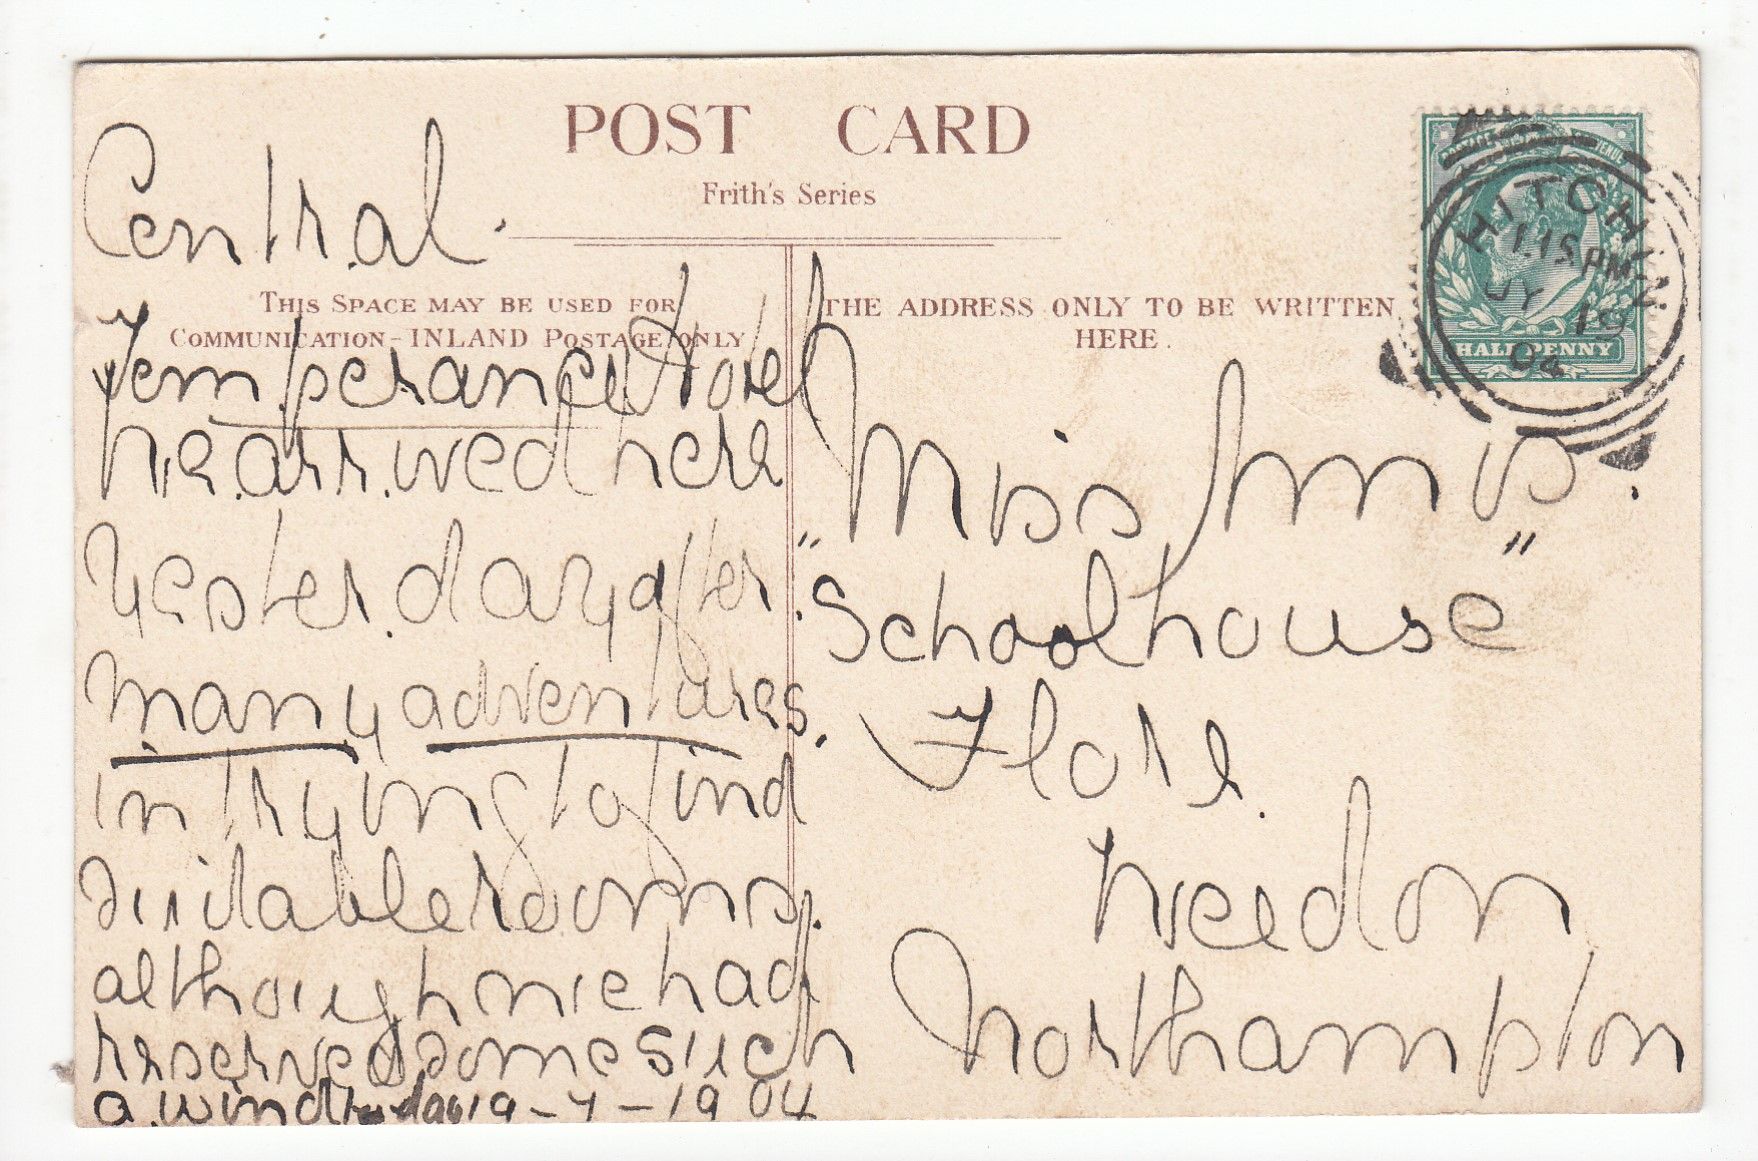 POST CARD
Frith's Series
THIS SPACE MAY BE USED FOR
COMMUNICATION - INLAND POSTAGE ONLY
THE ADDRESS ONLY TO BE WRITTEN
HERE.
HALFPENNY
HITCHIN
1.15 PM
JY 19
04
Central.
Temperance Hotel
We arrived here
yesterday after
many adventures,
in trying to find
suitable rooms.
although we had
reserved some such
a wind day 19-7-1904
Miss
"Schoolhouse"
Flore.
Weedon
Northampton